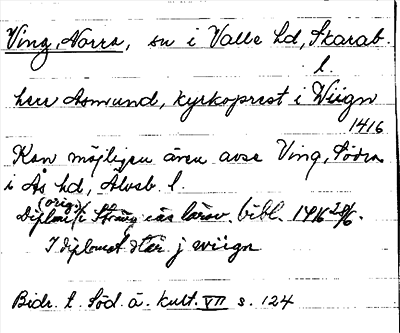 Ving, Norra, sn i Valle hd, Skarab.
l.
herr Asmund, kyrkoprest i Wiign
1416
Kan möjligen även avse Ving, Södra
i Ås hd, Älvsb. l.
(orig.)
Diplom i Strängnäs lärov. bibl. 1416 28/6.
I diplomet står j wiign
Bidr. t. Söd. ä. kult. VII s. 124